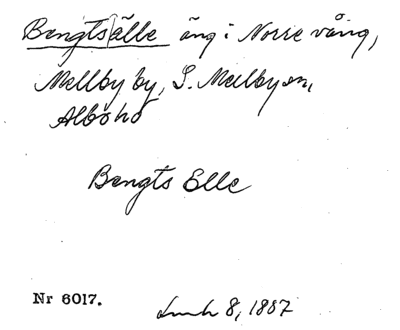 Bengts|älle äng i Norre vång,
Mellby by, S. Mellby sn,
Albo hd
Bengts Elle
Nr 6017.
8, 1887